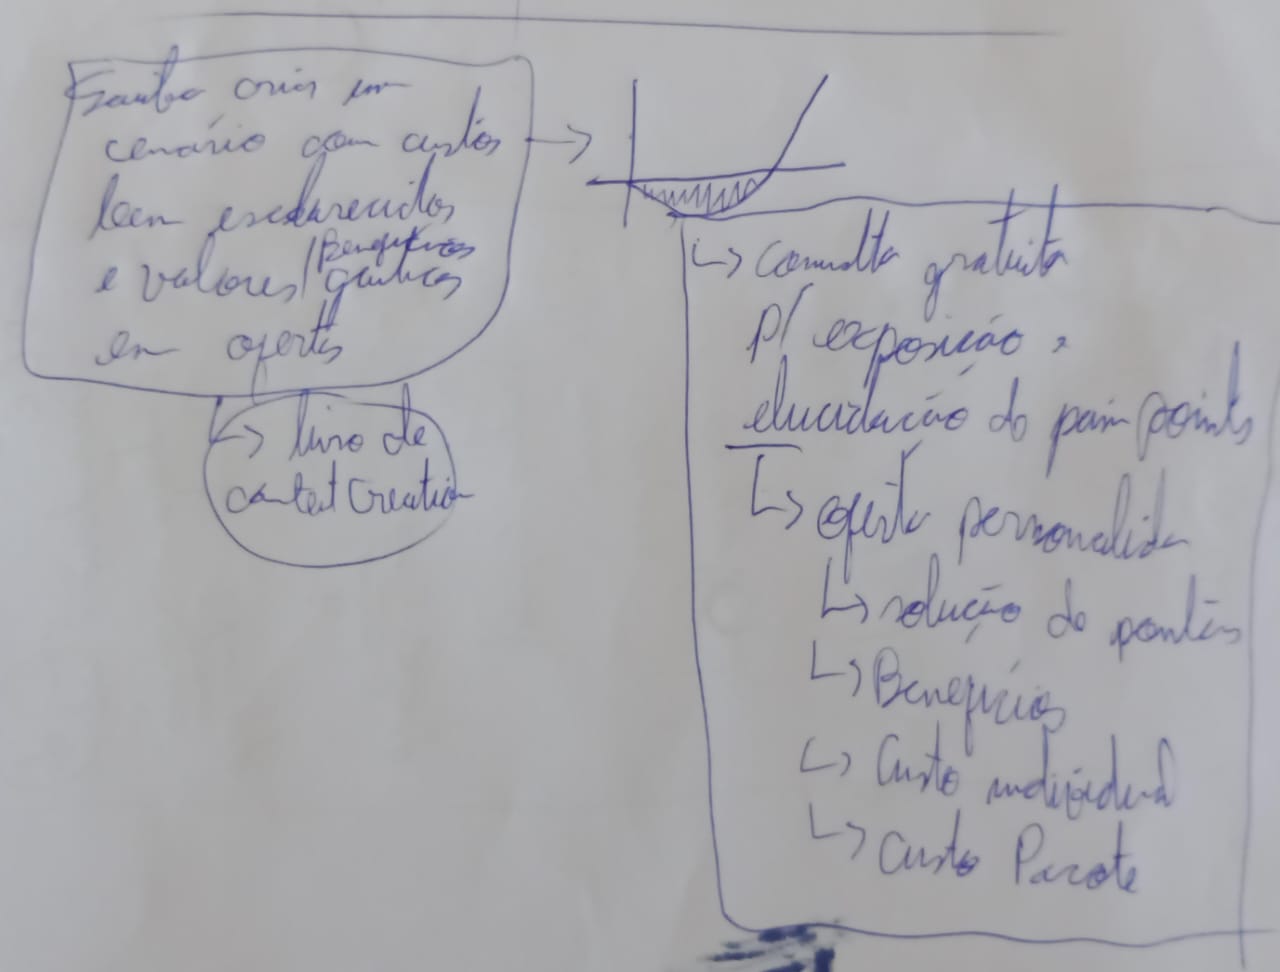 Saiba criar um
cenário com custos
bem esclarecidos
Benefícios
e valores/ganhos
em ofertas
↳ livro de
content Creation
↳ Consulta gratuita
p/ exposição,
elucidação do pain points
↳ oferta personalida
↳ solução do
↳ Benefícios
↳ Custo individual
↳ Custo Pacote